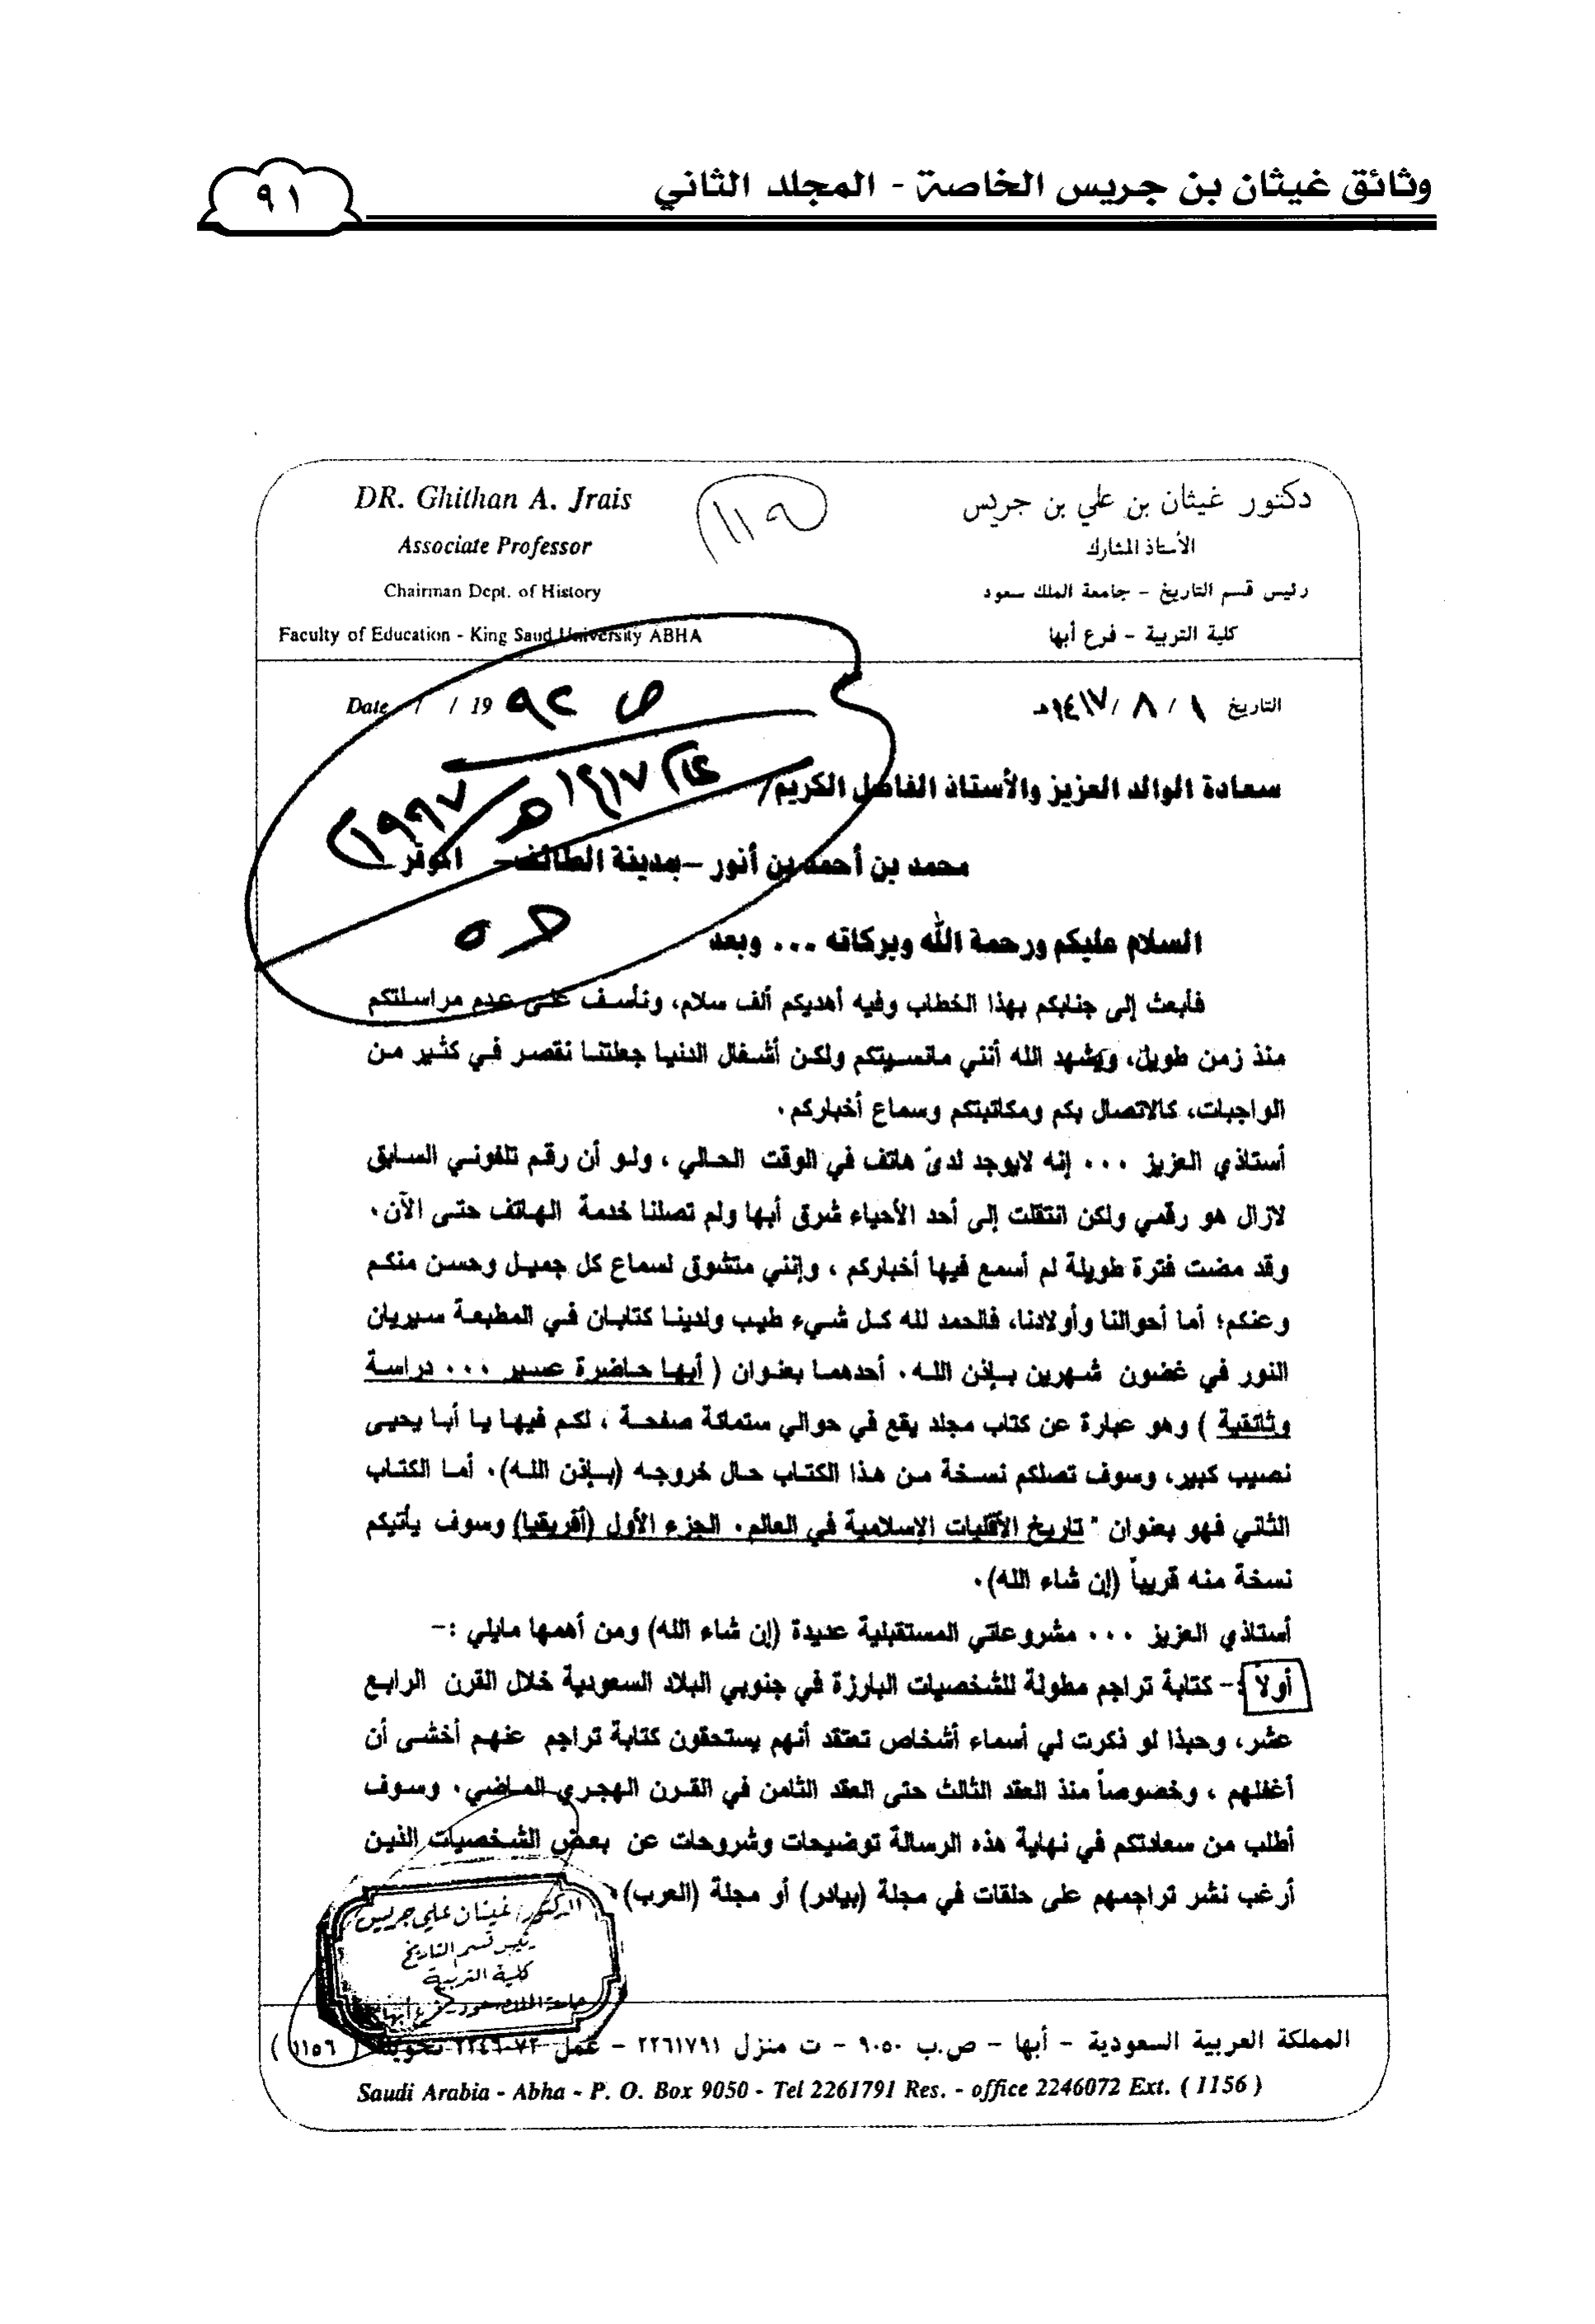 وثائق غيثان بن جريس الخاصة - المجلد الثاني
٩١
DR. Ghithan A. Jrais
Associate Professor
Chairman Dept. of History
Faculty of Education - King Saud University ABHA
دكتور غيثان بن علي بن جريس
الأستاذ المشارك
رئيس قسم التاريخ - جامعة الملك سعود
كلية التربية - فرع أبها
التاريخ ١ / ٨ / ١٤١٧هـ
Date / / 19
ص ٩٢
١٤١٧هـ
١٩٩٧م
سعادة الوالد العزيز والأستاذ الفاضل الكريم/
محمد بن أحمد بن أنور -بمدينة الطائف- الموقر
السلام عليكم ورحمة الله وبركاته ... وبعد
فأبعث إلى جنابكم بهذا الخطاب وفيه أهديكم ألف سلام، ونأسف على عدم مراسلتكم
منذ زمن طويل، ويشهد الله أنني مانسيتكم ولكن أشغال الدنيا جعلتنا نقصر في كثير من
الواجبات، كالاتصال بكم ومكاتبتكم وسماع أخباركم.
أستاذي العزيز ... إنه لايوجد لدى هاتف في الوقت الحالي ، ولو أن رقم تلفوني السابق
لازال هو رقمي ولكن انتقلت إلى أحد الأحياء شرق أبها ولم تصلنا خدمة الهاتف حتى الآن.
وقد مضت فترة طويلة لم أسمع فيها أخباركم ، وإنني متشوق لسماع كل جميل وحسن منكم
وعنكم؛ أما أحوالنا وأولادنا، فالحمد لله كل شيء طيب ولدينا كتابان في المطبعة سيريان
النور في غضون شهرين بإذن الله. أحدهما بعنوان ( أبها حاضرة عسير ... دراسة
وثائقية ) وهو عبارة عن كتاب مجلد يقع في حوالي ستمائة صفحة ، لكم فيها يا أبا يحيى
نصيب كبير، وسوف تصلكم نسخة من هذا الكتاب حال خروجه (بإذن الله). أما الكتاب
الثاني فهو بعنوان " تاريخ الأقليات الإسلامية في العالم. الجزء الأول (أفريقيا) وسوف يأتيكم
نسخة منه قريباً (إن شاء الله).
أستاذي العزيز ... مشروعاتي المستقبلية عديدة (إن شاء الله) ومن أهمها مايلي :-
أولاً :- كتابة تراجم مطولة للشخصيات البارزة في جنوبي البلاد السعودية خلال القرن الرابع
عشر، وحبذا لو ذكرت لي أسماء أشخاص تعتقد أنهم يستحقون كتابة تراجم عنهم أخشى أن
أغفلهم ، وخصوصاً منذ العقد الثالث حتى العقد الثامن في القرن الهجري الماضي. وسوف
أطلب من سعادتكم في نهاية هذه الرسالة توضيحات وشروحات عن بعض الشخصيات الذين
أرغب نشر تراجمهم على حلقات في مجلة (بيادر) أو مجلة (العرب).
الدكتور/ غيثان علي جريس
رئيس قسم التاريخ
كلية التربية
جامعة الملك سعود - فرع أبها
المملكة العربية السعودية - أبها - ص.ب ٩٠٥٠ - ت منزل ٢٢٦١٧٩١ - عمل ٢٢٤٦٠٧٢ تحويلة ( ١١٥٦ )
Saudi Arabia - Abha - P. O. Box 9050 - Tel 2261791 Res. - office 2246072 Ext. ( 1156 )